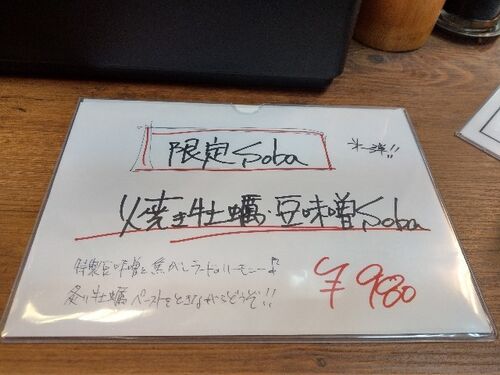 限定Soba
焼き牡蠣・豆味噌Soba
特製豆味噌と焦がしラードのハーモニー♪
炙り牡蠣ペーストをときながらどうぞ!!
¥980